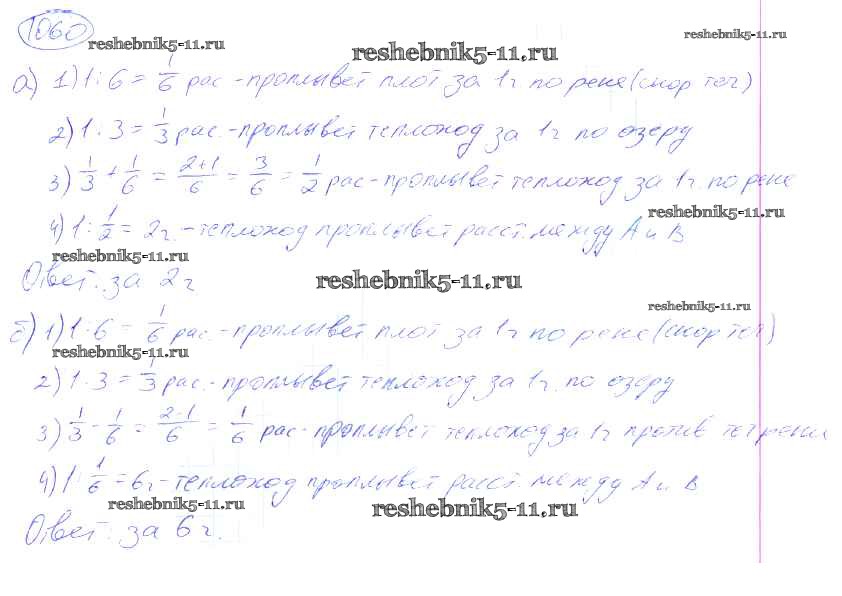 1060
reshebnik5-11.ru
reshebnik5-11.ru
reshebnik5-11.ru
а) 1) 1:6 = 1/6 рас - проплывет плот за 1ч по реке (скор теч)
2) 1:3 = 1/3 рас. - проплывет теплоход за 1ч по озеру
3) 1/3 + 1/6 = 2+1/6 = 3/6 = 1/2 рас - проплывет теплоход за 1ч. по реке
reshebnik5-11.ru
4) 1:1/2 = 2ч. - теплоход проплывет расст. между А и В
reshebnik5-11.ru
Ответ: за 2ч
reshebnik5-11.ru
reshebnik5-11.ru
б) 1) 1:6 = 1/6 рас. - проплывет плот за 1ч по реке (скор теч)
reshebnik5-11.ru
2) 1:3 = 1/3 рас. - проплывет теплоход за 1ч. по озеру
3) 1/3 - 1/6 = 2-1/6 = 1/6 рас - проплывет теплоход за 1ч против теч реки
4) 1:1/6 = 6ч - теплоход проплывет расст. между А и В
reshebnik5-11.ru
reshebnik5-11.ru
Ответ: за 6ч.